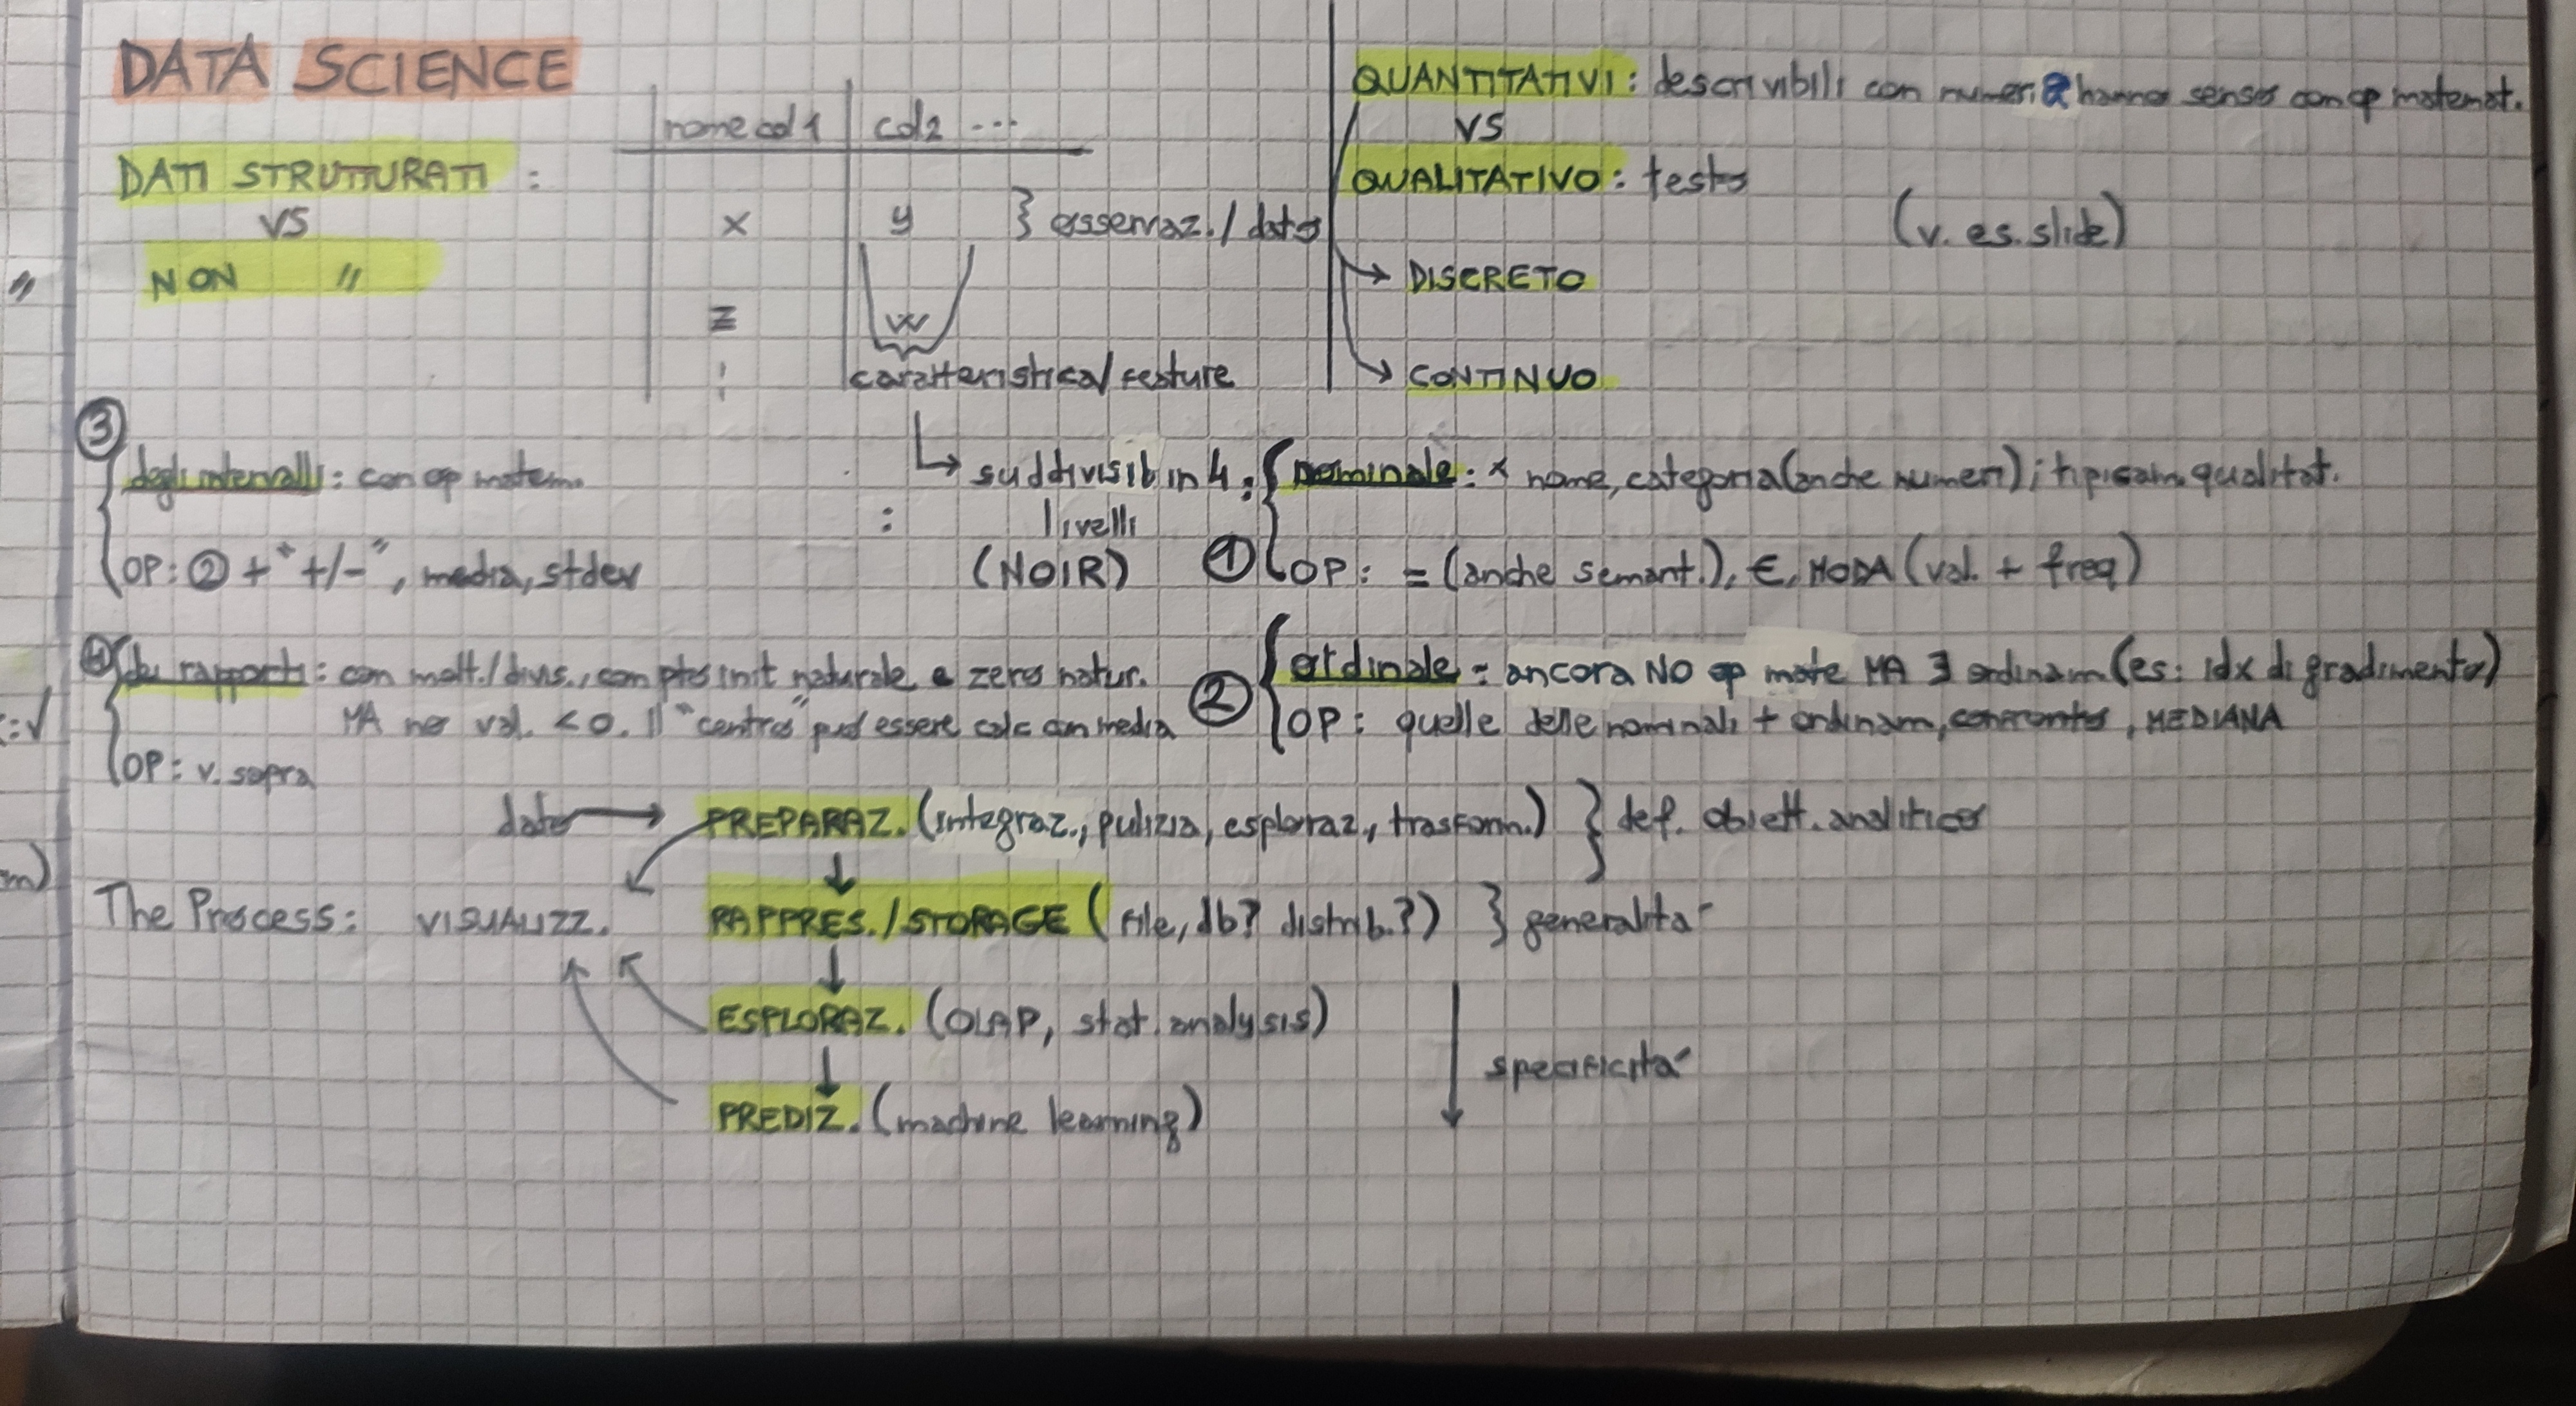 DATA SCIENCE
nome col 1 | col2 ...
DATI STRUTTURATI :
VS
NON "
x y } osservaz. / dato
z w
caratteristica / feature
QUANTITATIVI : descrivibili con numeri e hanno senso con op matemat.
VS
QUALITATIVO : testo
(v. es. slide)
→ DISCRETO
→ CONTINUO
↳ suddivisib in 4 :
livelli
(NOIR)
① nominale : x nome, categoria (anche numeri) ; tipicam. qualitat.
OP : = (anche semant.), ∈, MODA (val. + freq)
② ordinale : ancora NO op mate MA ∃ ordinam (es: idx di gradimento)
OP : quelle delle nominali + ordinam, confronto, MEDIANA
③ degli intervalli : con op matem.
OP : ② + "+/-", media, stdev
④ dei rapporti : con molt./divis., con pto init naturale e zero natur.
MA no val. < 0. Il "centro" può essere calc con media
OP : v. sopra
dato → PREPARAZ. (integraz., pulizia, esploraz., trasform.) } def. obiett. analitico
The Process : VISUALIZZ. RAPPRES. / STORAGE (file, db? distrib.?) } generalità
ESPLORAZ. (OLAP, stat. analysis)
specificità
PREDIZ. (machine learning)